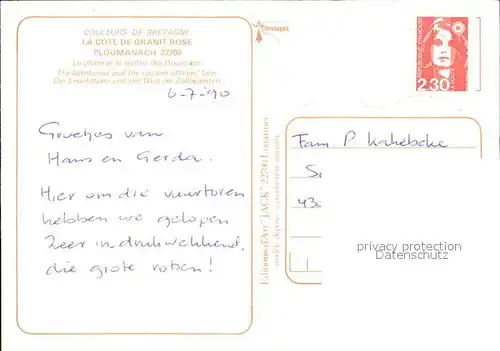 COULEURS DE BRETAGNE
LA COTE DE GRANIT ROSE
PLOUMANACH 22700
Le phare et le sentier des Douaniers
The lighthouse and the custom officers' lane
Der Leuchtturm und der Weg der Zollbeamten
6-7-'90
Groetjes van
Hans en Gerda.
Hier om die vuurtoren
hebben we gelopen
Zeer indrukwekkend,
die grote rotsen!
Editions d'Art "JACK" 22700 Louannec
modèle déposé
2,30
Fam P
privacy protection